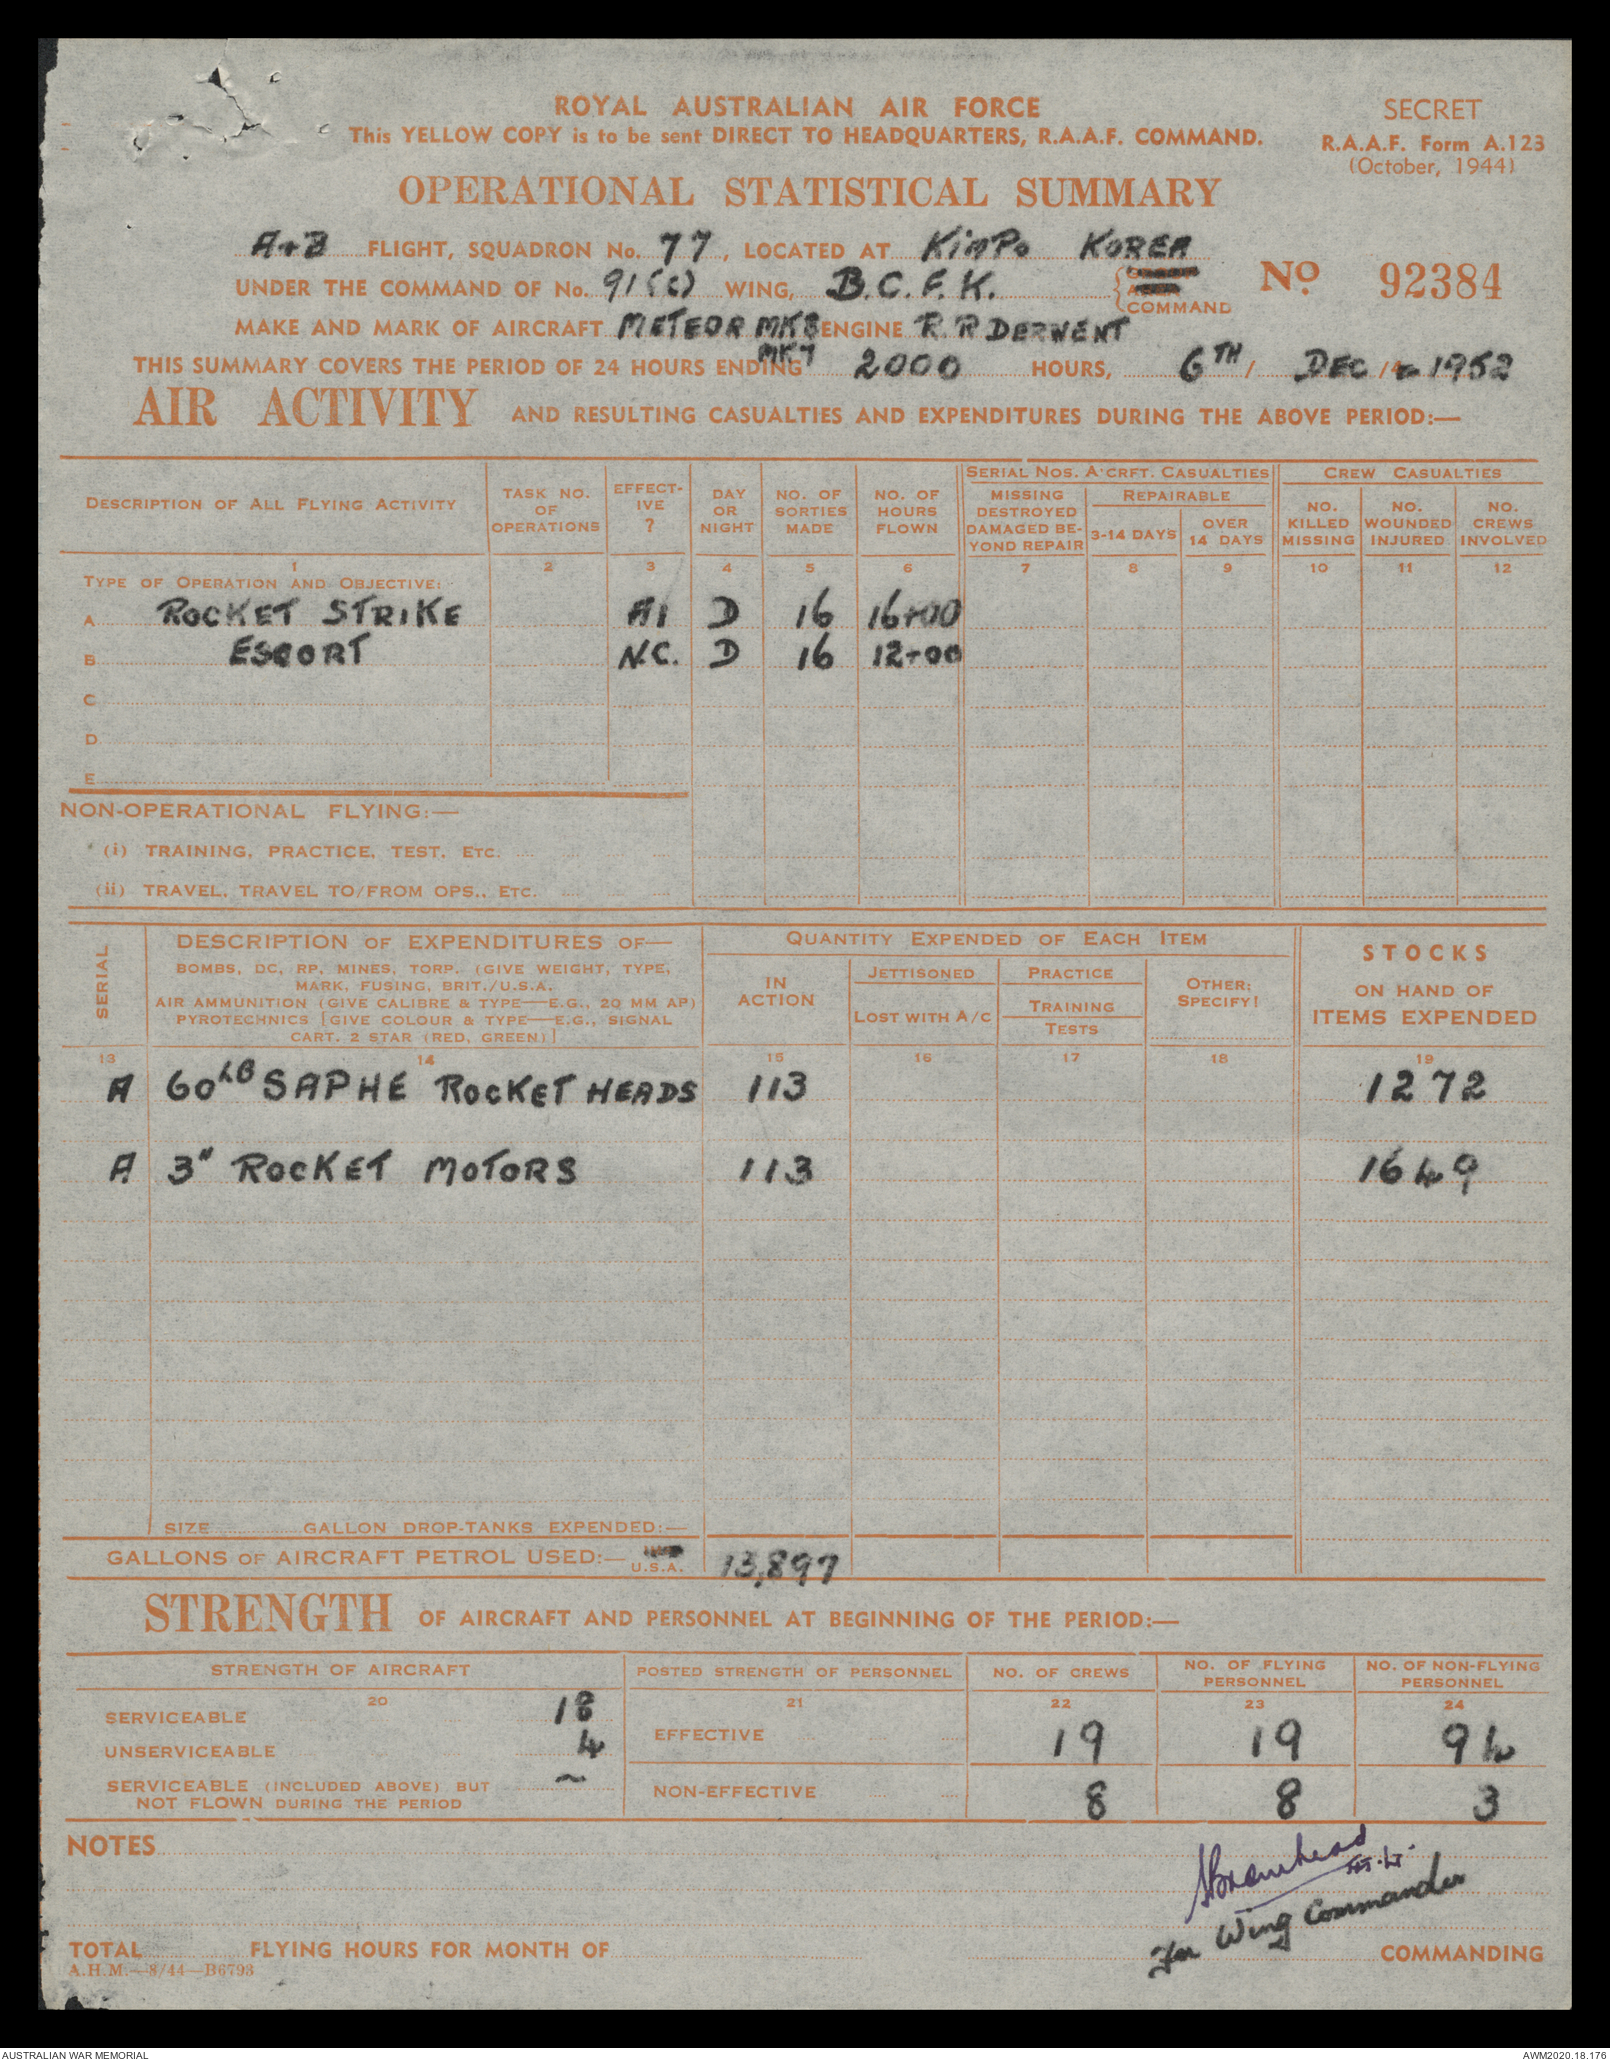 ROYAL AUSTRALIAN AIR FORCE
SECRET
This YELLOW COPY is to be sent DIRECT TO HEADQUARTERS, R.A.A.F. COMMAND.
R.A.A.F. Form A.123
(October, 1944)
OPERATIONAL STATISTICAL SUMMARY
A+B FLIGHT, SQUADRON No. 77, LOCATED AT KIMPO KOREA
UNDER THE COMMAND OF No. 91(C) WING, B.C.F.K. COMMAND
No. 92384
MAKE AND MARK OF AIRCRAFT METEOR MK8 ENGINE R.R DERWENT
MK7
THIS SUMMARY COVERS THE PERIOD OF 24 HOURS ENDING 2000 HOURS, 6TH / DEC / 1952
AIR ACTIVITY AND RESULTING CASUALTIES AND EXPENDITURES DURING THE ABOVE PERIOD:—
DESCRIPTION OF ALL FLYING ACTIVITY
TASK NO. OF OPERATIONS
EFFECT-IVE ?
DAY OR NIGHT
NO. OF SORTIES MADE
NO. OF HOURS FLOWN
SERIAL NOS. A'CRFT. CASUALTIES
MISSING DESTROYED DAMAGED BE-YOND REPAIR
REPAIRABLE
3-14 DAYS
OVER 14 DAYS
CREW CASUALTIES
NO. KILLED MISSING
NO. WOUNDED INJURED
NO. CREWS INVOLVED
1 2 3 4 5 6 7 8 9 10 11 12
TYPE OF OPERATION AND OBJECTIVE:
A ROCKET STRIKE A1 D 16 16+00
B ESCORT N.C. D 16 12+00
C
D
E
NON-OPERATIONAL FLYING:—
(i) TRAINING, PRACTICE, TEST, ETC.
(ii) TRAVEL, TRAVEL TO/FROM OPS., ETC.
SERIAL
DESCRIPTION OF EXPENDITURES OF—
BOMBS, DC, RP, MINES, TORP. (GIVE WEIGHT, TYPE,
MARK, FUSING, BRIT./U.S.A.
AIR AMMUNITION (GIVE CALIBRE & TYPE—E.G., 20 MM AP)
PYROTECHNICS [GIVE COLOUR & TYPE—E.G., SIGNAL
CART. 2 STAR (RED, GREEN)]
QUANTITY EXPENDED OF EACH ITEM
IN ACTION
JETTISONED
LOST WITH A/C
PRACTICE
TRAINING
TESTS
OTHER: SPECIFY!
STOCKS
ON HAND OF
ITEMS EXPENDED
13 14 15 16 17 18 19
A 60LB SAPHE ROCKET HEADS 113 1272
A 3" ROCKET MOTORS 113 1649
SIZE GALLON DROP-TANKS EXPENDED:—
GALLONS OF AIRCRAFT PETROL USED:— U.S.A. 13,897
STRENGTH OF AIRCRAFT AND PERSONNEL AT BEGINNING OF THE PERIOD:—
STRENGTH OF AIRCRAFT
POSTED STRENGTH OF PERSONNEL
NO. OF CREWS
NO. OF FLYING PERSONNEL
NO. OF NON-FLYING PERSONNEL
20 21 22 23 24
SERVICEABLE 18
UNSERVICEABLE 4
SERVICEABLE (INCLUDED ABOVE) BUT
NOT FLOWN DURING THE PERIOD ~
EFFECTIVE 19 19 94
NON-EFFECTIVE 8 8 3
NOTES
For Wing Commander
TOTAL FLYING HOURS FOR MONTH OF
COMMANDING
A.H.M.—8/44—B6793
AUSTRALIAN WAR MEMORIAL
AWM2020.18.176